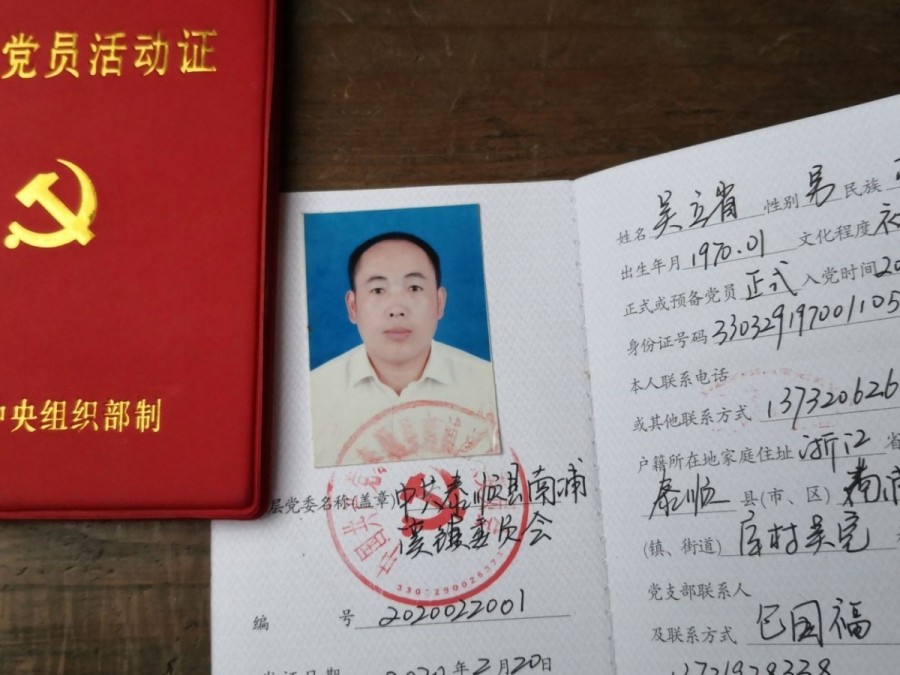 党员活动证
中央组织部制
层党委名称(盖章)中共泰顺县南浦
溪镇委员会
编 号 2020022001
发证日期 2020年2月20日
姓名 吴立省 性别 男 民族
出生年月 1970.01 文化程度 初
正式或预备党员 正式 入党时间 20
身份证号码 330329197001105
本人联系电话
或其他联系方式 137320626
户籍所在地家庭住址 浙江 省
泰顺 县(市、区) 南浦
(镇、街道) 库村吴宅
党支部联系人
及联系方式 包国福